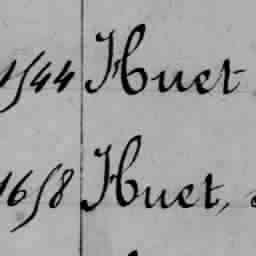 1544 Huet
1658 Huet,